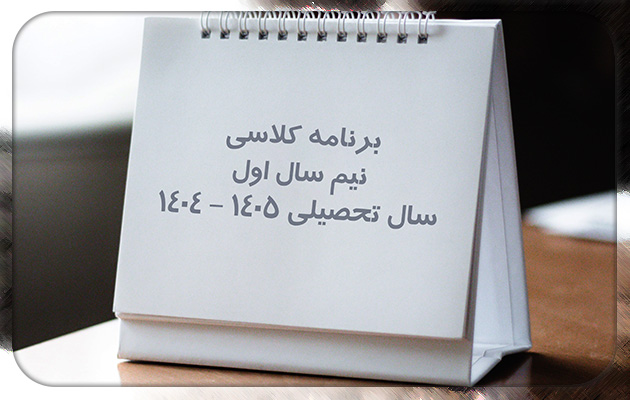 برنامه کلاسی
نیم سال اول
سال تحصیلی ۱۴۰۵ – ۱۴۰۴